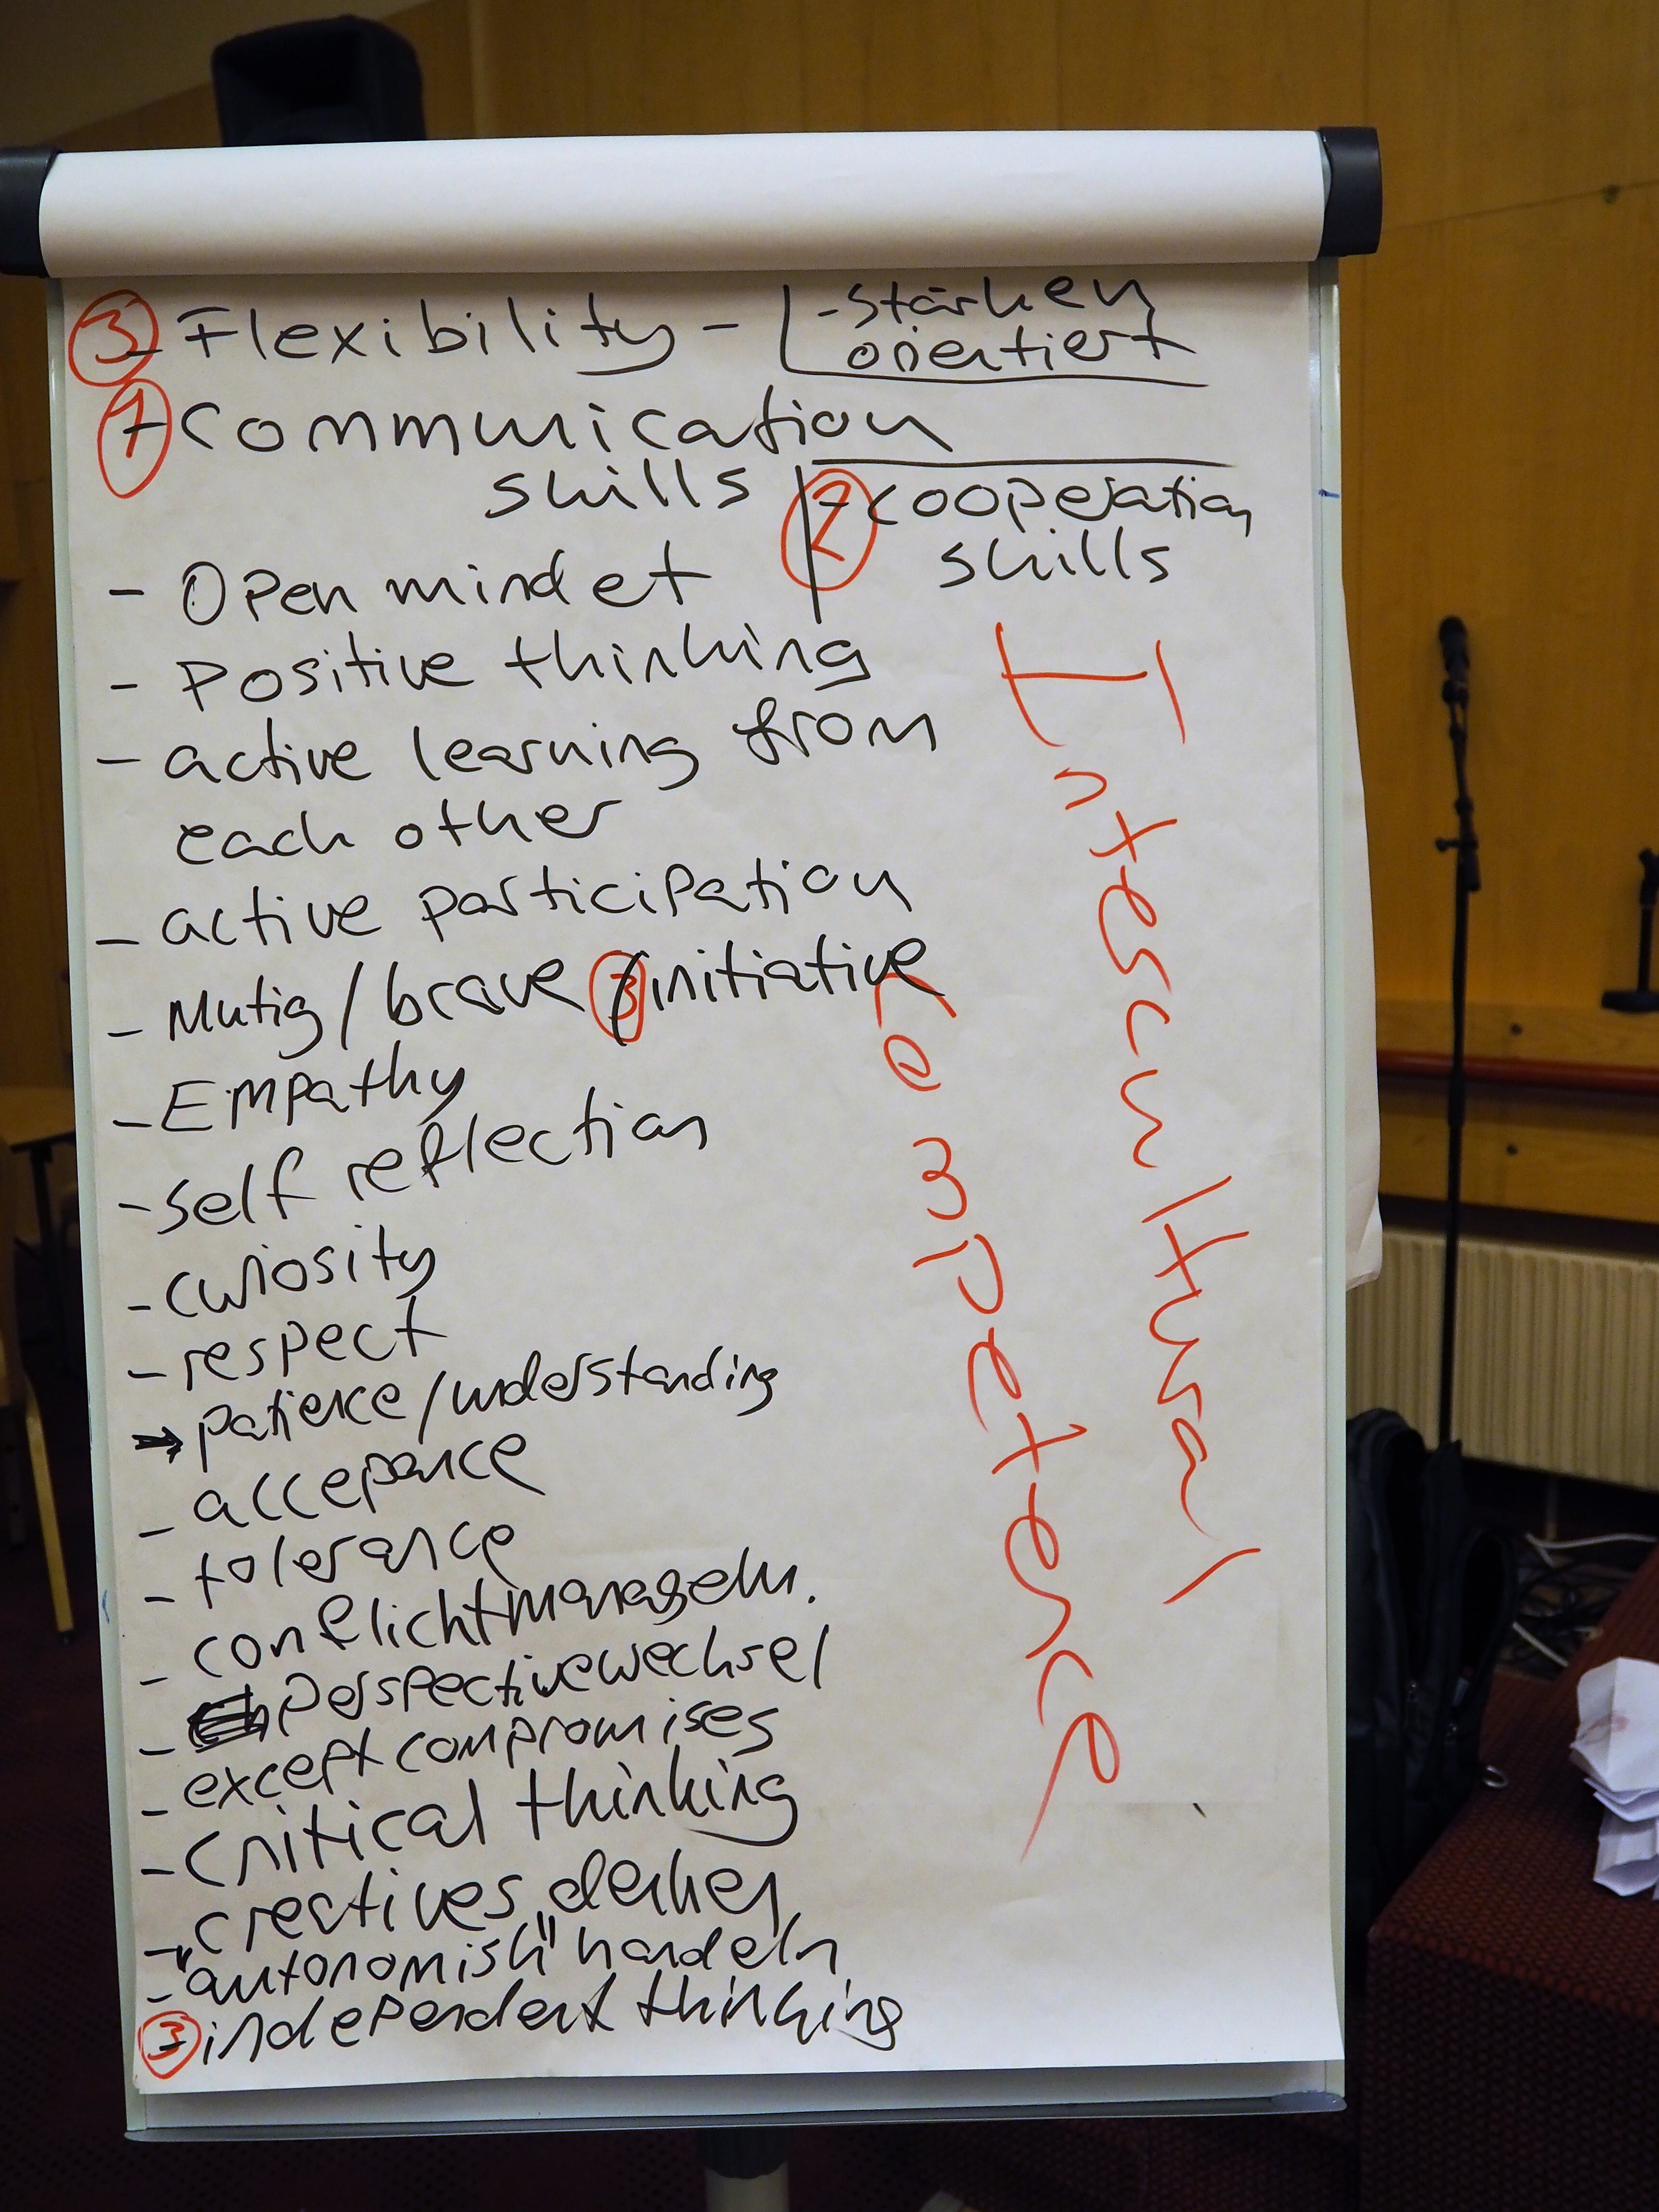 ③ - Flexibility -
- stärken
orientiert
① - communication
skills
② - cooperation
skills
- Open mindet
- Positive thinking
- active learning from
each other
- active participation
- Mutig / brave ③ / initiative
- Empathy
- self reflection
- curiosity
- respect
→ patience / understanding
- accepance
- tolerance
- conflichtmanagem.
- Perspectivewechsel
- except compromises
- critical thinking
- creatives denken
- "autonomish" handeln
③ - independent thinking
Intercultural
Competence